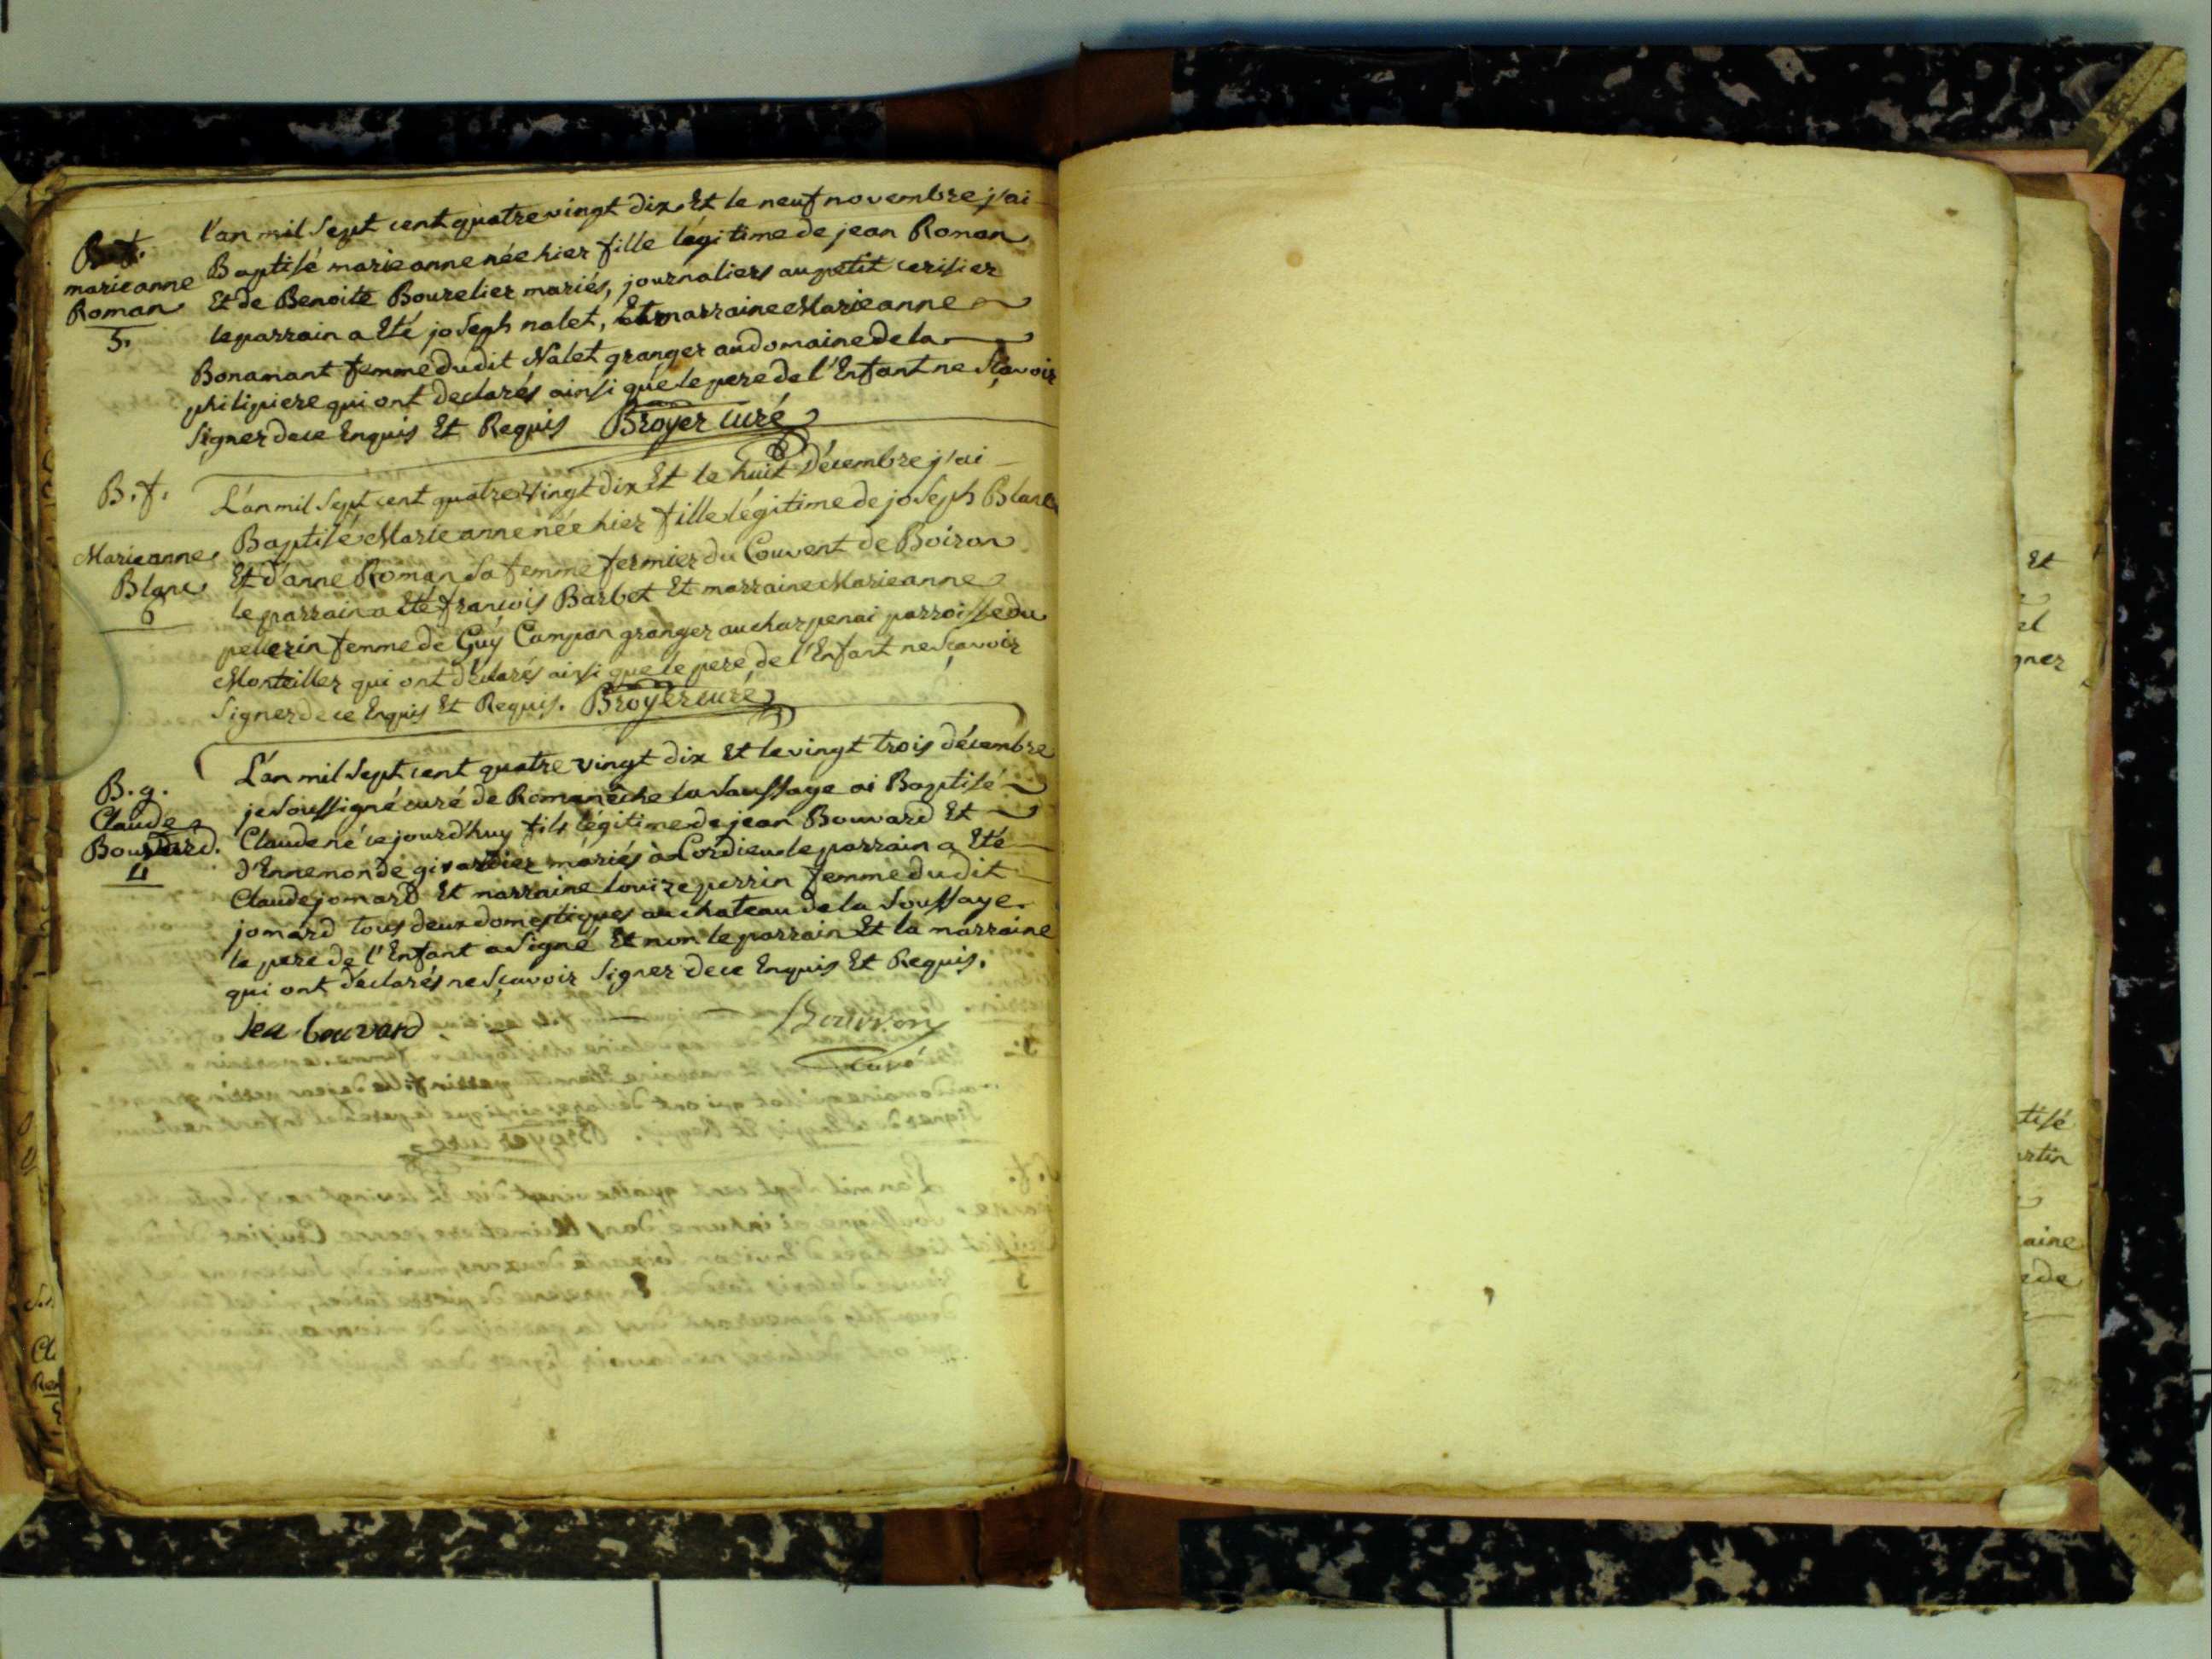 B.f.
marieanne
Roman
5.
l'an mil sept cent quatre vingt dix Et le neuf novembre j'ai
Baptisé marieanne née hier fille légitime de jean Roman
Et de Benoite Bourelier mariés, journaliers au petit cerisier
le parrain a Eté joseph nalet, Et marraine Marieanne
Bonamant femme dudit Nalet granger au domaine de la
philipiere qui ont declarés ainsi que le pere de l'Enfant ne sçavoir
signer de ce Enquis Et Requis Broyer curé
B.f.
Marieanne
Blanc
6
L'an mil sept cent quatre vingt dix Et le huit Décembre j'ai
Baptisé Marieanne née hier fille légitime de joseph Blanc
Et d'anne Roman sa femme fermier du Couvent de Boiron
le parrain a Eté francois Barbet Et marraine Marieanne
pellerin femme de Guÿ Campan granger au charpenai parroisse du
Monteiller qui ont déclarés ainsi que le pere de l'Enfant ne sçavoir
signer de ce Enquis Et Requis. Broyer curé
B.g.
Claude
Bouvard.
4
L'an mil sept cent quatre vingt dix Et le vingt trois décembre
je soussigné curé de Romanêche la saussaye ai Baptisé
Claude né ce jourd'huy fils légitime de jean Bouvard Et
d'Ennemonde girardier mariés à Cordieu le parrain a Eté
Claude jomard Et marraine louize perrin femme dudit
jomard tous deux domestiques au chateau de la Saussaye
le pere de l'Enfant a signé Et non le parrain Et la marraine
qui ont déclarés ne sçavoir signer de ce Enquis Et Requis.
Jea bouvard
curé
Et
gner
tisé
rtin
aine